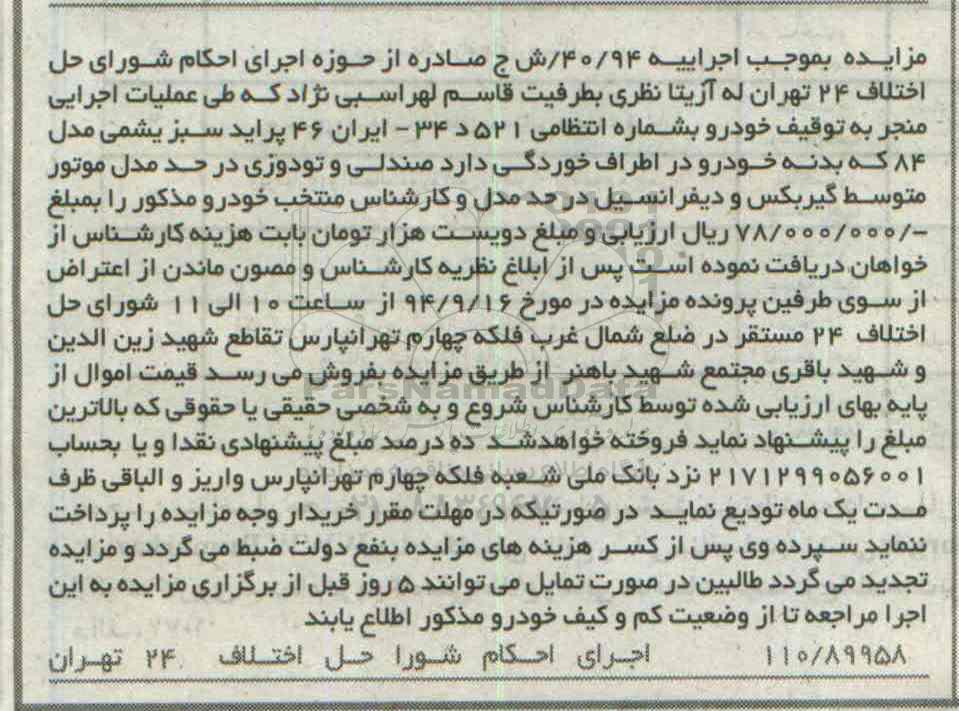 مزایده بموجب اجراییه ۴۰/۹۴/ش ج صادره از حوزه اجرای احکام شورای حل
اختلاف ۲۴ تهران له آزیتا نظری بطرفیت قاسم لهراسبی نژاد که طی عملیات اجرایی
منجر به توقیف خودرو بشماره انتظامی ۵۲۱ د ۳۴ - ایران ۴۶ پراید سبز یشمی مدل
۸۴ که بدنه خودرو در اطراف خوردگی دارد صندلی و تودوزی در حد مدل موتور
متوسط گیربکس و دیفرانسیل در حد مدل و کارشناس منتخب خودرو مذکور را بمبلغ
-/۷۸/۰۰۰/۰۰۰ ریال ارزیابی و مبلغ دویست هزار تومان بابت هزینه کارشناس از
خواهان دریافت نموده است پس از ابلاغ نظریه کارشناس و مصون ماندن از اعتراض
از سوی طرفین پرونده مزایده در مورخ ۹۴/۹/۱۶ از ساعت ۱۰ الی ۱۱ شورای حل
اختلاف ۲۴ مستقر در ضلع شمال غرب فلکه چهارم تهرانپارس تقاطع شهید زین الدین
و شهید باقری مجتمع شهید باهنر از طریق مزایده بفروش می رسد قیمت اموال از
پایه بهای ارزیابی شده توسط کارشناس شروع و به شخصی حقیقی یا حقوقی که بالاترین
مبلغ را پیشنهاد نماید فروخته خواهدشد ده درصد مبلغ پیشنهادی نقدا و یا بحساب
۲۱۷۱۲۹۹۰۵۶۰۰۱ نزد بانک ملی شعبه فلکه چهارم تهرانپارس واریز و الباقی ظرف
مدت یک ماه تودیع نماید در صورتیکه در مهلت مقرر خریدار وجه مزایده را پرداخت
ننماید سپرده وی پس از کسر هزینه های مزایده بنفع دولت ضبط می گردد و مزایده
تجدید می گردد طالبین در صورت تمایل می توانند ۵ روز قبل از برگزاری مزایده به این
اجرا مراجعه تا از وضعیت کم و کیف خودرو مذکور اطلاع یابند
۱۱۰/۸۹۹۵۸ اجرای احکام شورا حل اختلاف ۲۴ تهران
ParsNamadData